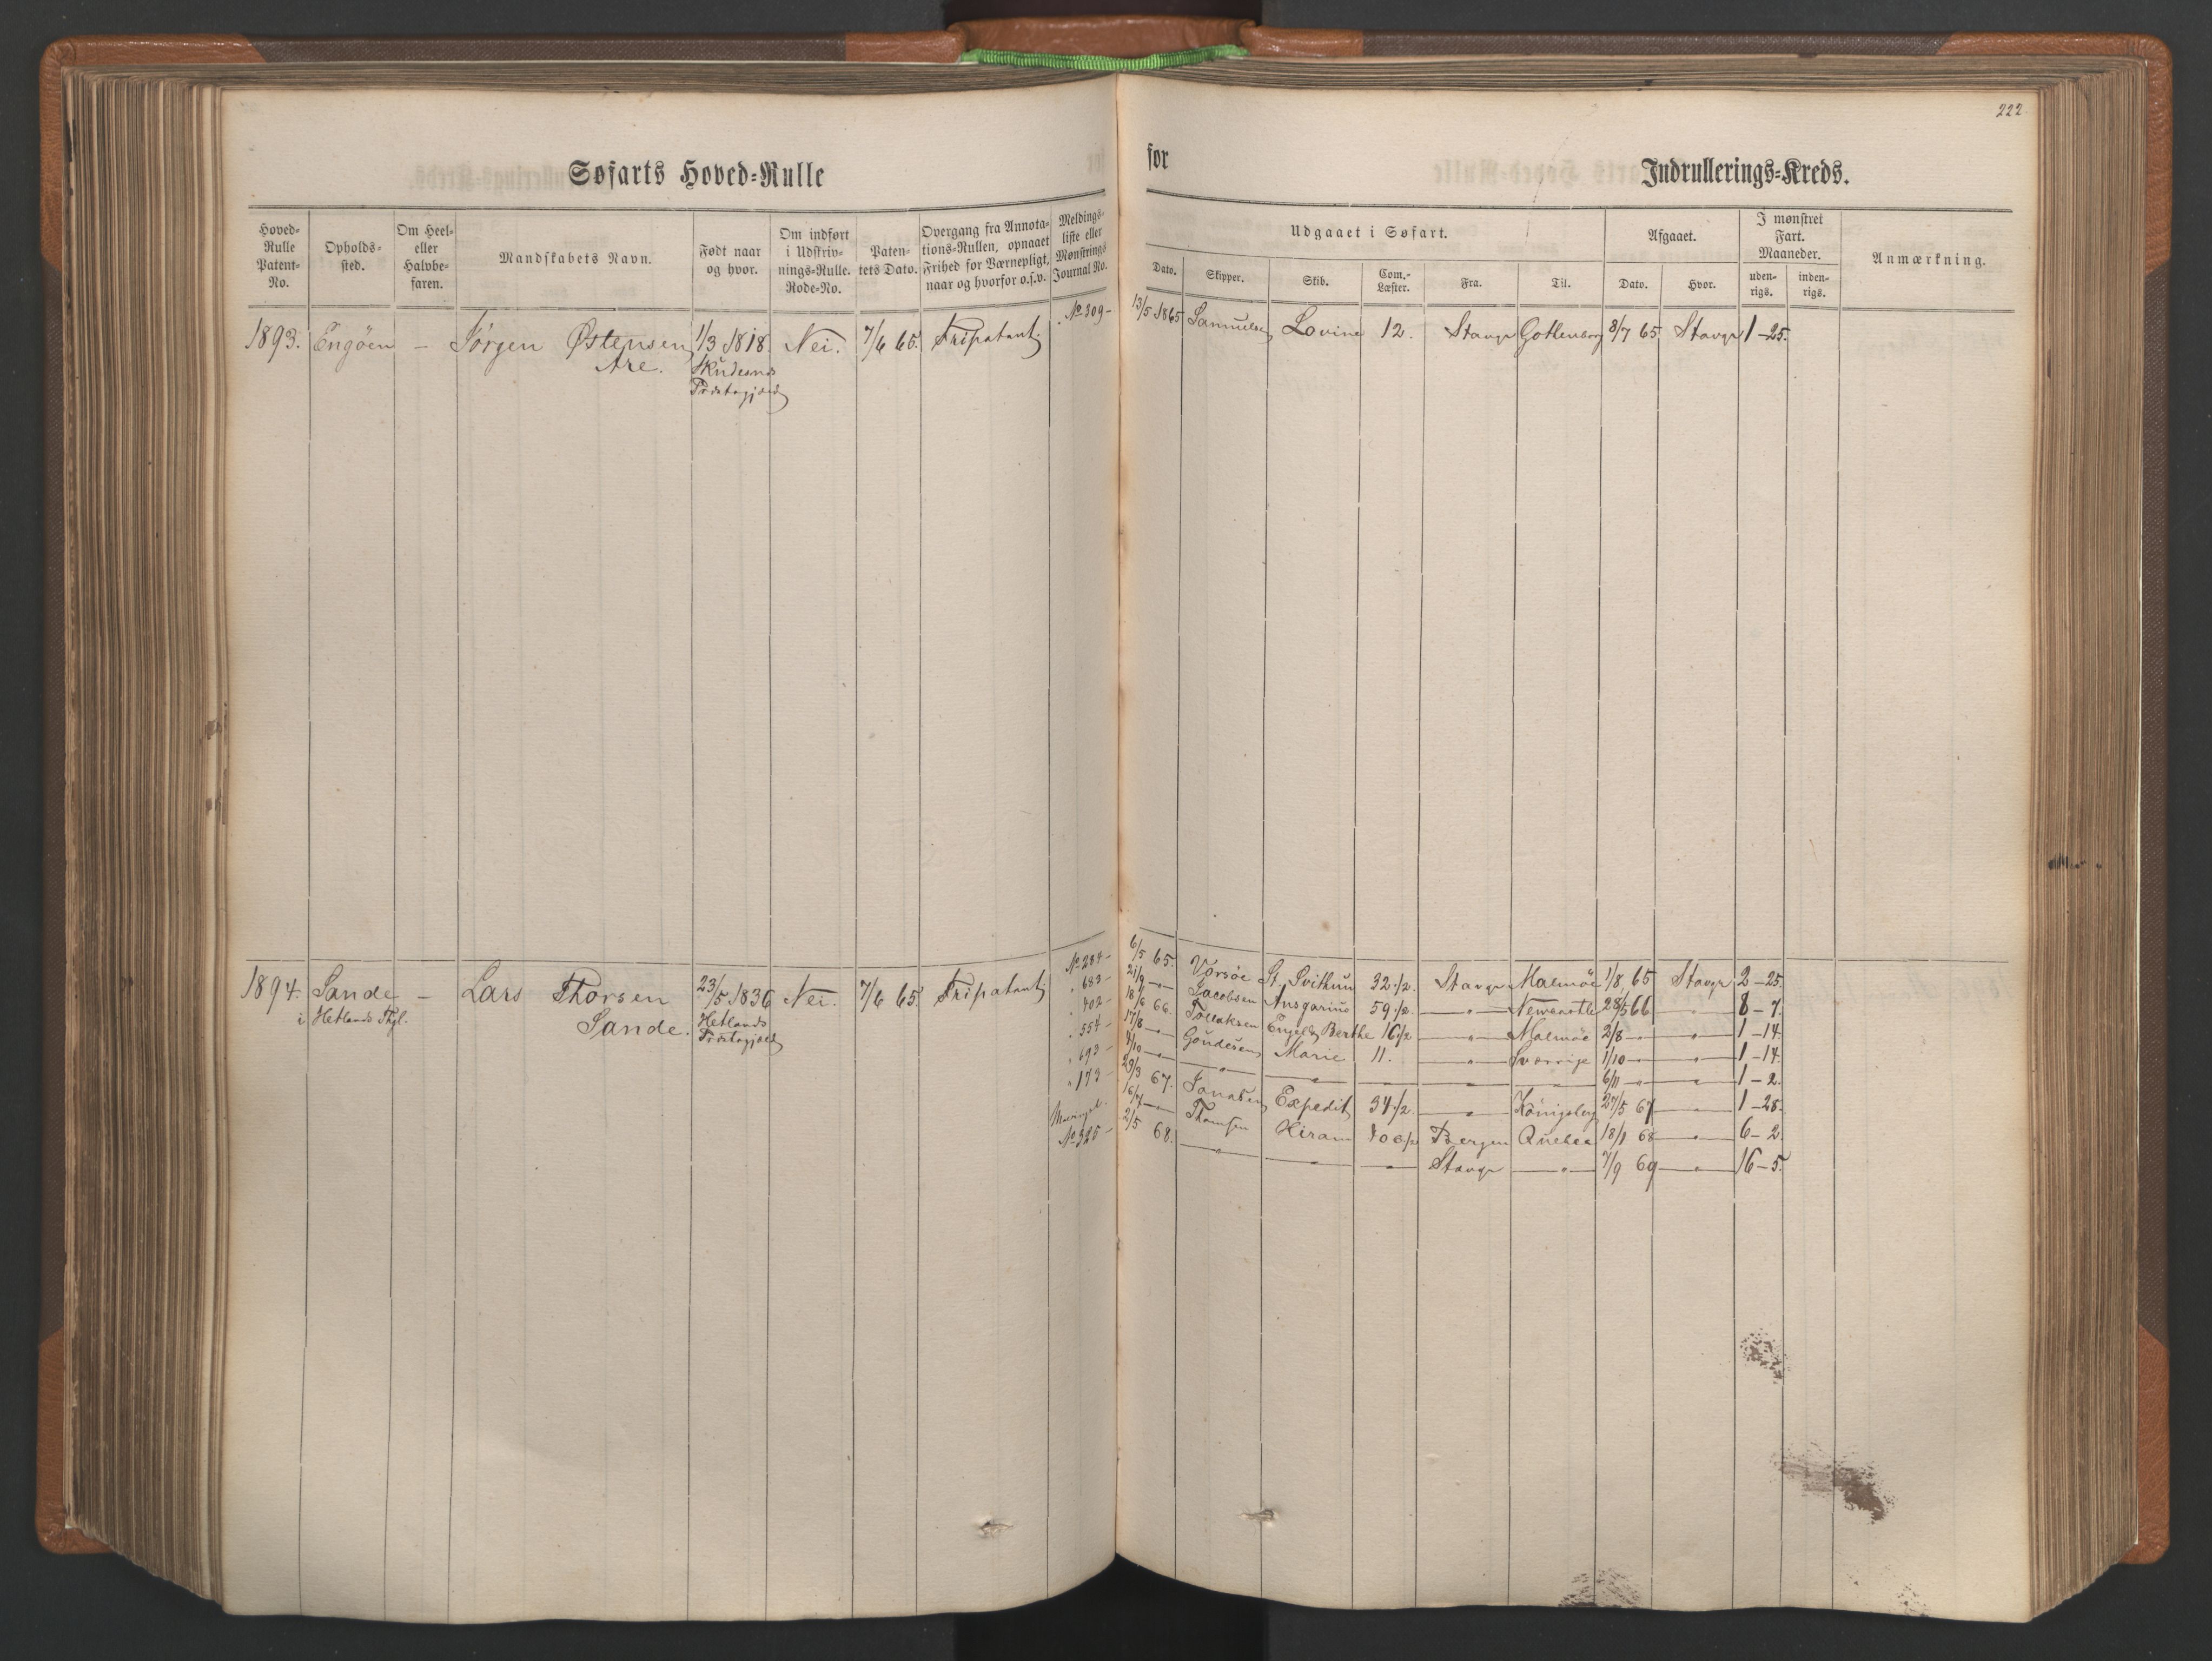 222
Søfarts Hoved-Rulle
for
Indrullerings-Kreds.
Hoved-Rulle Patent-No.
Opholds-sted.
Om Heel- eller Halvbe-faren.
Mandskabets Navn.
Født naar og hvor.
Om indført i Udskriv-nings-Rulle. Rode-No.
Paten-tets Dato.
Overgang fra Annota-tions-Rullen, opnaaet Frihed for Værnepligt, naar og hvorfor o.s.v.
Meldings-liste eller Mønstrings Journal No.
Udgaaet i Søfart.
Dato.
Skipper.
Skib.
Com.-Læster.
Fra.
Til.
Afgaaet.
Dato.
Hvor.
I mønstret Fart. Maaneder.
uden-rigs.
inden-rigs.
Anmærkning.
1893. Engöen – Jörgen Østensen 1/3 1818. Nei. 7/6 65. Fripatent № 309 – 13/5 1865 Samuelsen Lovine 12. Stavgr Gottenborg 8/7 65. Stavgr 1 – 25.
Are. Skudesnes
Præstegjæld
1894. Sande – Lars Thorsen 23/5 1836 Nei. 7/6 65. Fripatent № 284 – 6/5 65. Vorsöe St. Svithun 32 1/2. Stavgr Malmöe 1/8 65 Stavgr 2 – 25.
i Hetlands Thgl. Sande. Hetlands
Præstegjæld
" 683 – 21/9 – " – Jacobsen Ansgarius 59 1/2. – " – Newcastle 28/5 66 – " – 8 – 7.
" 402 – 18/6 66. Tollaksen Engelds Berthe 16 1/2 – " – Malmöe 2/8 – " – " – 1 – 14.
" 554 – 17/8 – " – Goudesen Marie 11. – " – Sverrige 1/10 – " – " – 1 – 14.
" 693 – 4/10 – " – " – " – " – " – " – 6/11 – " – " – 1 – 2.
" 173 – 29/3 67. Jonasen Expedit 34 1/2. – " – Königsberg 27/5 67 – " – 1 – 28.
16/7 – " – Thomsen Hiram Bergen Quebec 18/1 68 – " – 6 – 2.
№ 325 – 2/5 68. – " – " – " – Stavgr – " – 7/9 69 – " – 16 – 5.